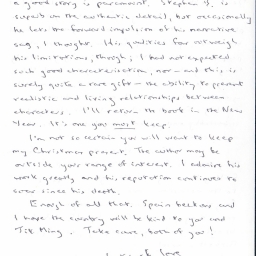 a good story is paramount. Stephen J. is
superb on the authentic detail, but occasionally
he lets the forward impulsion of his narrative
sag, I thought. His qualities far outweigh
his limitations, though; I had not expected
such good characterisation, nor - and this is
surely quite a rare gift - the ability to present
realistic and living relationships between
characters. I'll return the book in the New
Year. It's one you must keep.
I'm not so certain you will want to keep
my Christmas present. The author may be
outside your range of interest. I admire his
work greatly and his reputation continues to
ever since his death.
Enough of all that. Spain beckons and
I hope the country will be kind to you and
Take care, both of you!
love